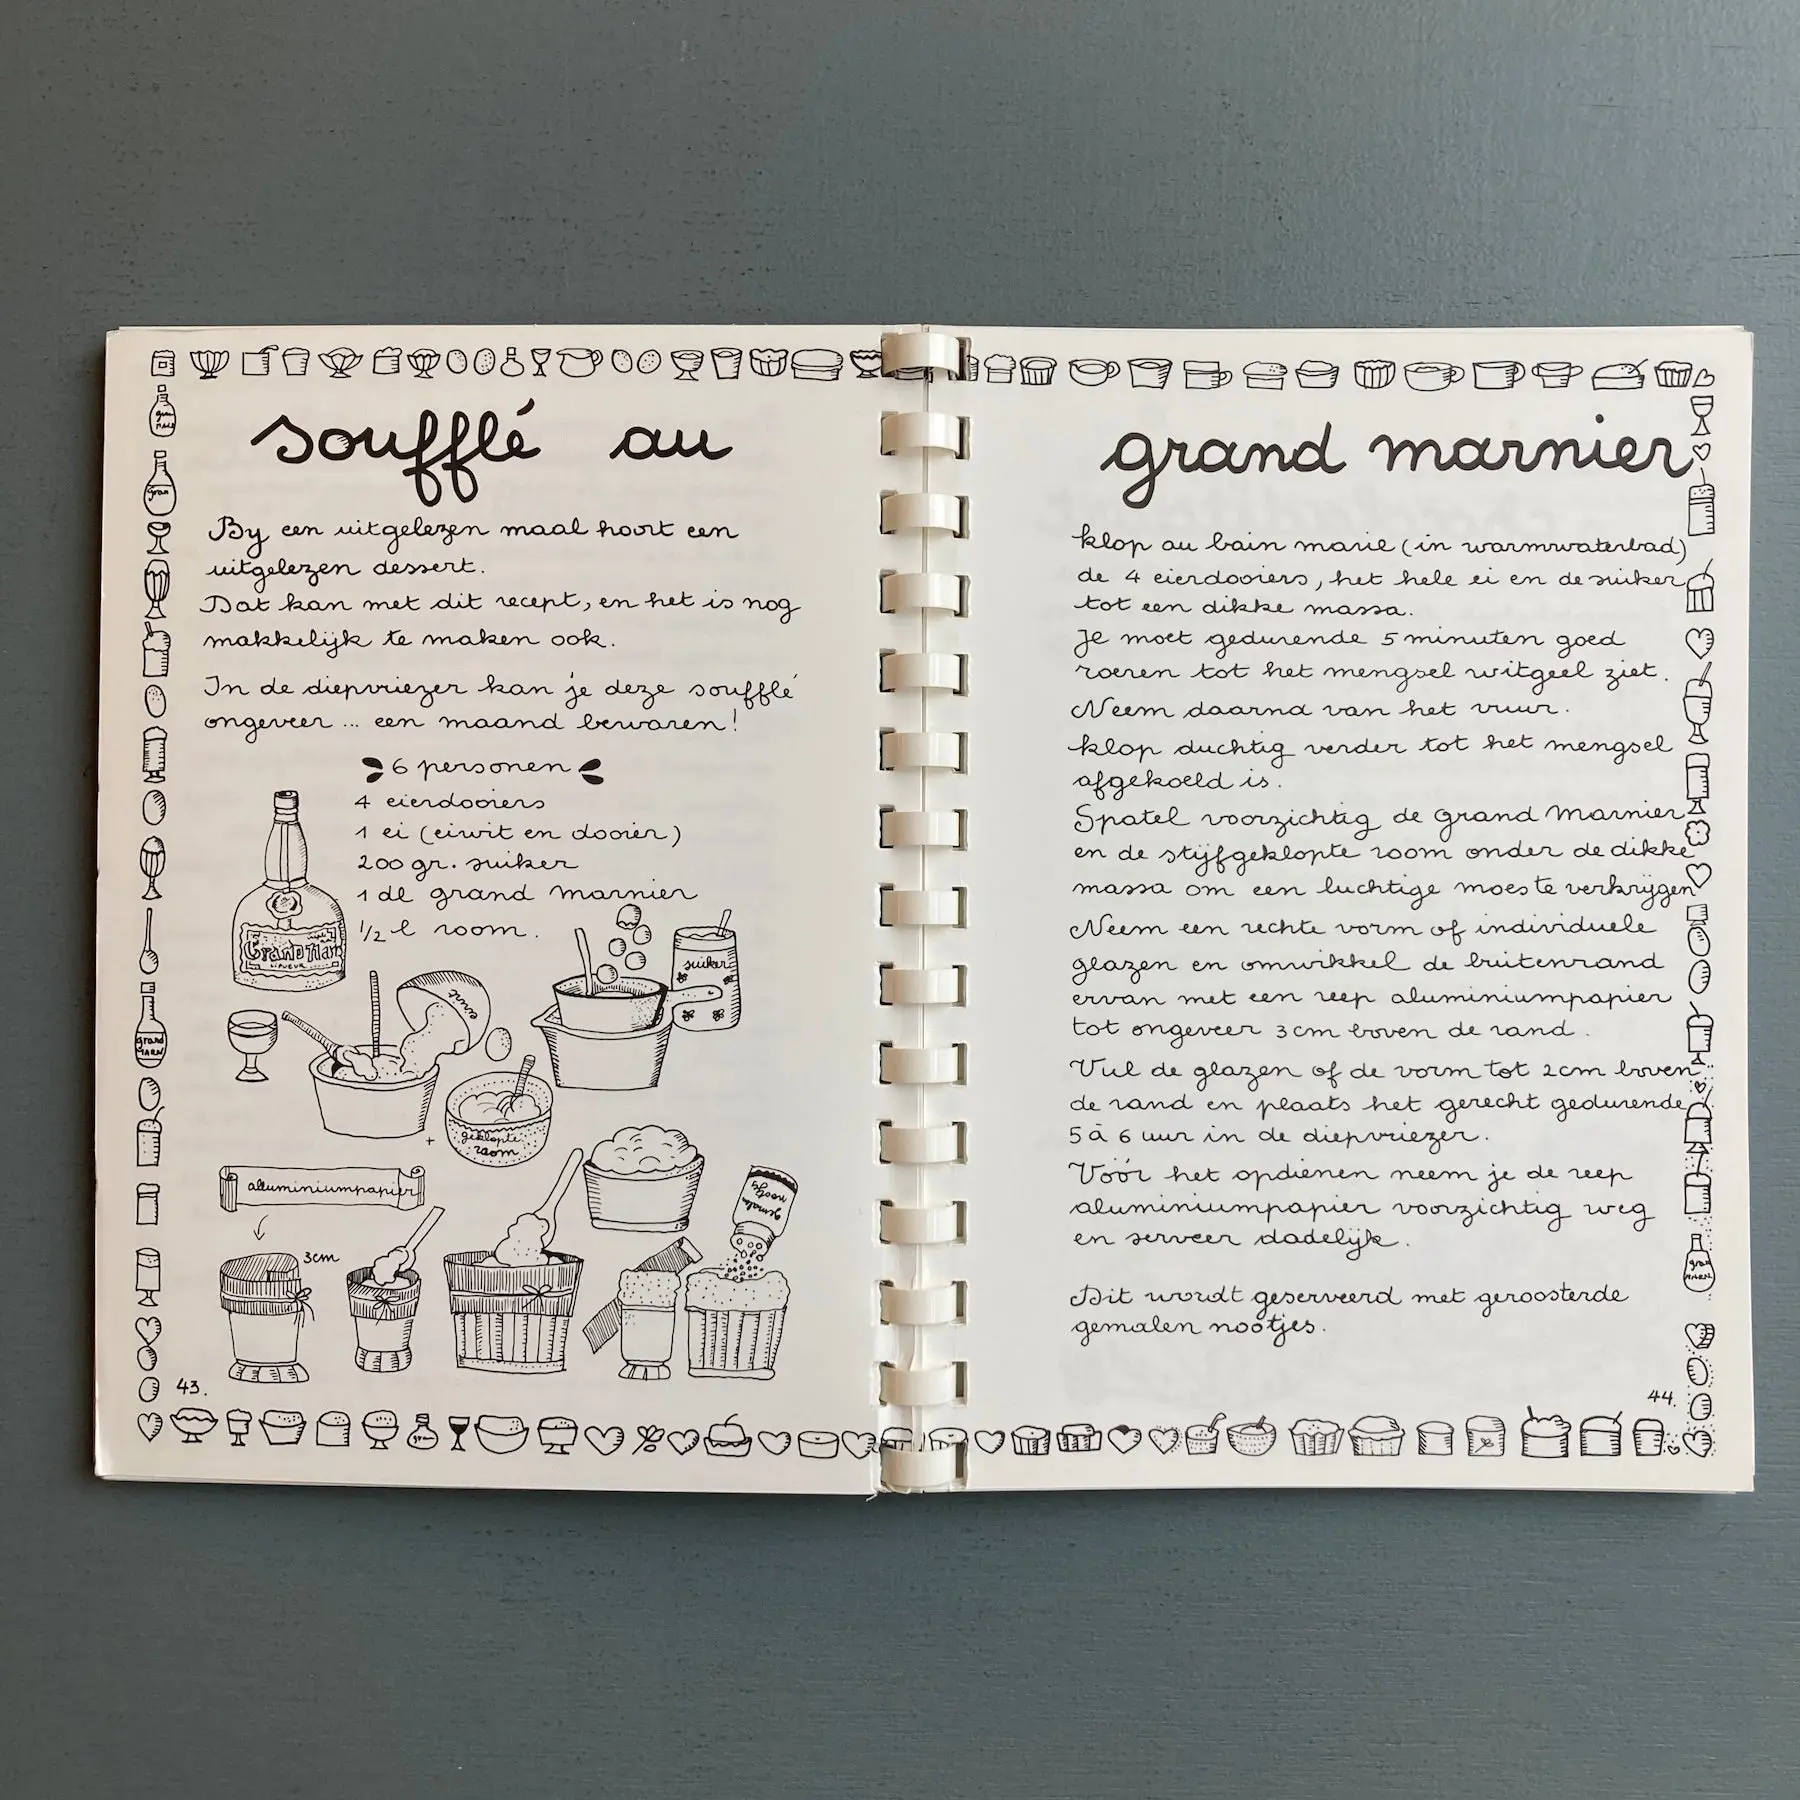 soufflé au
By een uitgelezen maal hoort een
uitgelezen dessert.
Dat kan met dit recept, en het is nog
makkelijk te maken ook.
In de diepvriezer kan je deze soufflé
ongeveer ... een maand bewaren!
6 personen
4 eierdooiers
1 ei (eiwit en dooier)
200 gr. suiker
1 dl grand marnier
1/2 l room.
GRAND MAR
LIQUEUR
suiker
+
geklopte
room
aluminiumpapier
3cm
gemalen
nootjes
43.
grand marnier
klop au bain marie (in warmwaterbad)
de 4 eierdooiers, het hele ei en de suiker
tot een dikke massa.
Je moet gedurende 5 minuten goed
roeren tot het mengsel witgeel ziet.
Neem daarna van het vuur.
klop duchtig verder tot het mengsel
afgekoeld is.
Spatel voorzichtig de Grand Marnier
en de stijfgeklopte room onder de dikke
massa om een luchtige moes te verkrijgen
Neem een rechte vorm of individuele
glazen en omwikkel de buitenrand
ervan met een reep aluminiumpapier
tot ongeveer 3 cm boven de rand.
Vul de glazen of de vorm tot 2cm boven
de rand en plaats het gerecht gedurende
5 à 6 uur in de diepvriezer.
Vóór het opdienen neem je de reep
aluminiumpapier voorzichtig weg
en serveer dadelijk.
Dit wordt geserveerd met geroosterde
gemalen nootjes.
44.